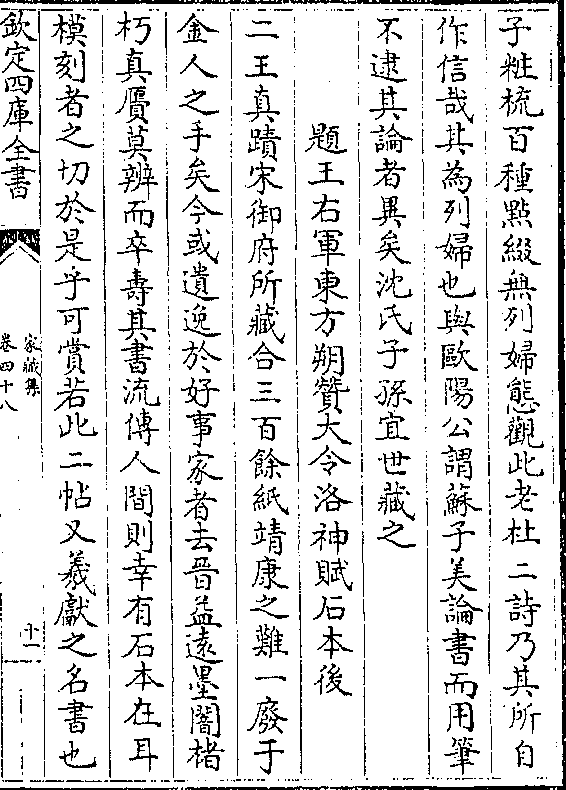 子粧梳百種點綴無列婦態觀此老杜二詩乃其所自
作信哉其為列婦也與歐陽公謂蘇子美論書而用筆
不逮其論者異矣沈氏子孫宜世藏之
題王右軍東方朔贊大令洛神賦石本後
二王真蹟宋御府所藏合三百餘紙靖康之難一廢于
金人之手矣今或遺逸於好事家者去晉益遠墨闇楮
朽真贋莫辨而卒壽其書流傳人間則幸有石本在耳
模刻者之切於是乎可賞若此二帖又羲獻之名書也
欽定四庫全書
家藏集
卷四十八
十一